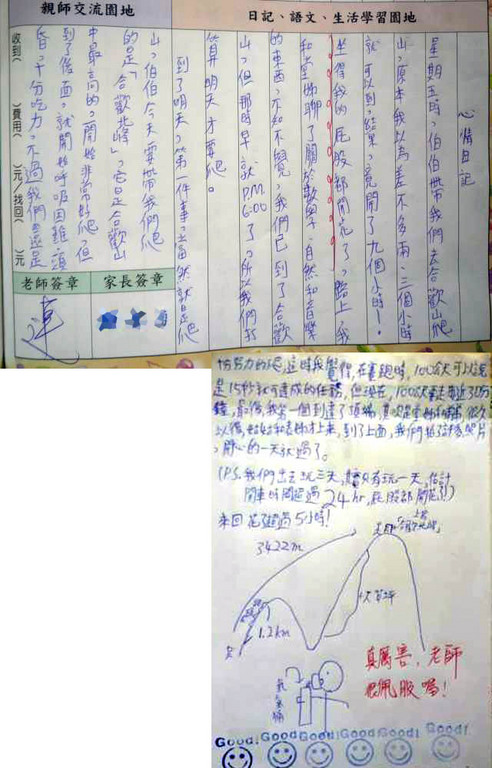 親師交流園地
日記、語文、生活學習園地
心情日記
星期五時,伯伯帶我們去合歡山爬
山,原本我以為差不多兩、三個小時
就可以到,結果,竟開了九個小時!
坐得我的屁股都開花了,路上,我
聊了關於數學、自然和音樂
的東西,不知不覺,我們已到了合歡
山,但那時早就P.M.
6:00了,所以我們打
算明天才要爬。
到了明天,第一件事,當然就是爬
山,伯伯今天要帶我們爬
的是「合歡北峰」,它是合歡山
中最高的,一開始非常好爬,但
到了後面,就開始呼吸困難,頭
昏,十分吃力,不過我們還是
收到( )費用( )元/找回( )元
老師簽章
家長簽章
努力的爬,這時我覺得,在賽跑時,100公尺可以說
是15秒就可達成的任務,但現在,100公尺要走將近3分
鐘,最後,我第一個到達了頂端,很久
以後,才上來,到了上面,我們拍了許多照片
,開心的一天就過了。
(P.S.我們出去玩三天,只有玩一天,估計
開車時間超過24hr,屁股都開花!)
來回花超過5小時!
3422m
1.2km
氧氣桶
真厲害,老師
很佩服喔!
Good! Good! Good! Good! Good! Good!